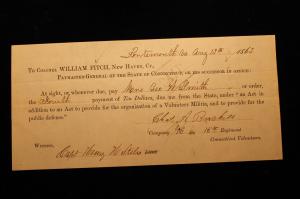 Portsmouth Va Aug 12th 1863
To COLONEL WILLIAM FITCH, NEW HAVEN, CT,
PAYMASTER-GENERAL OF THE STATE OF CONNECTICUT, OR HIS SUCCESSOR IN OFFICE:
At sight, or whenever due, pay Mrs Geo W Smith or order,
the Fourth payment of Ten Dollars, due me from the State, under "an Act in
addition to an Act to provide for the organization of a Volunteer Militia, and to provide for the
public defense."
Chas
Company 16th Regiment
Connecticut Volunteers.
WITNESS,
Capt Henry H